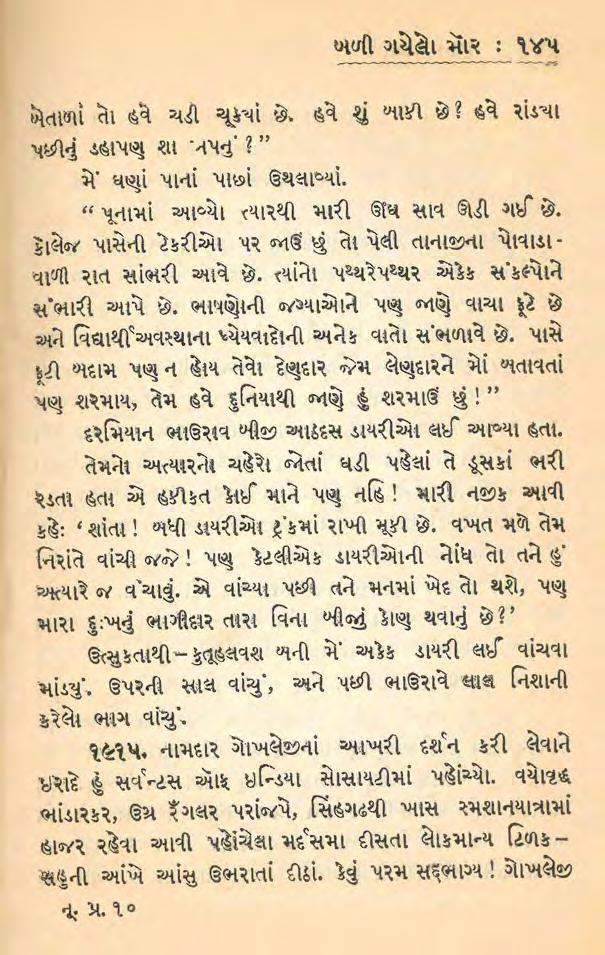 બળી ગયેલો મૉર : ૧૪૫
બેતાળાં તો હવે ચડી ચૂક્યાં છે. હવે શું બાકી છે? હવે રાંડ્યા
પછીનું ડહાપણ શા ખપનું ?”
મેં ઘણાં પાનાં પાછાં ઉથલાવ્યાં.
“ પૂનામાં આવ્યો ત્યારથી મારી ઊંઘ સાવ ઊડી ગઈ છે.
કૉલેજ પાસેની ટેકરીઓ પર જાઉં છું તો પેલી તાનાજીના પોવાડા-
વાળી રાત સાંભરી આવે છે. ત્યાંનો પથ્થરેપથ્થર એકેક સંકલ્પોને
સંભારી આપે છે. ભાષણોની જગ્યાઓને પણ જાણે વાચા ફૂટે છે
અને વિદ્યાર્થીઅવસ્થાના ધ્યેયવાદોની અનેક વાતો સંભળાવે છે. પાસે
ફૂટી બદામ પણ ન હોય તેવો દેણદાર જેમ લેણદારને મોં બતાવતાં
પણ શરમાય, તેમ હવે દુનિયાથી જાણે હું શરમાઉં છું !”
દરમિયાન ભાઉરાવ બીજી આઠદસ ડાયરીઓ લઈ આવ્યા હતા.
તેમનો અત્યારનો ચહેરો જોતાં ઘડી પહેલાં તે ડૂસકાં ભરી
રડતા હતા એ હકીકત કોઈ માને પણ નહિ ! મારી નજીક આવી
કહેઃ ‘ શાંતા ! બધી ડાયરીઓ ટ્રંકમાં રાખી મૂકી છે. વખત મળે તેમ
નિરાંતે વાંચી જજે ! પણ કેટલીએક ડાયરીઓની નોંધ તો તને હું
અત્યારે જ વંચાવું. એ વાંચ્યા પછી તને મનમાં ખેદ તો થશે, પણ
મારા દુઃખનું ભાગીદાર તારા વિના બીજું કોણ થવાનું છે?’
ઉત્સુકતાથી – કુતૂહલવશ બની મેં અકેક ડાયરી લઈ વાંચવા
માંડ્યું. ઉપરની સાલ વાંચું, અને પછી ભાઉરાવે લાલ નિશાની
કરેલો ભાગ વાંચું.
૧૯૧૫. નામદાર ગોખલેજીનાં આખરી દર્શન કરી લેવાને
ઇરાદે હું સર્વન્ટસ ઑફ ઇન્ડિયા સોસાયટીમાં પહોંચ્યો. વયોવૃદ્ધ
ભાંડારકર, ઉગ્ર રૅંગલર પરાંજપે, સિંહગઢથી ખાસ સ્મશાનયાત્રામાં
હાજર રહેવા આવી પહોંચેલા મર્દસમા દીસતા લોકમાન્ય ટિળક –
સહુની આંખે આંસુ ઉભરાતાં દીઠાં. કેવું પરમ સદ્દભાગ્ય ! ગોખલેજી
નૂ. પ્ર. ૧૦